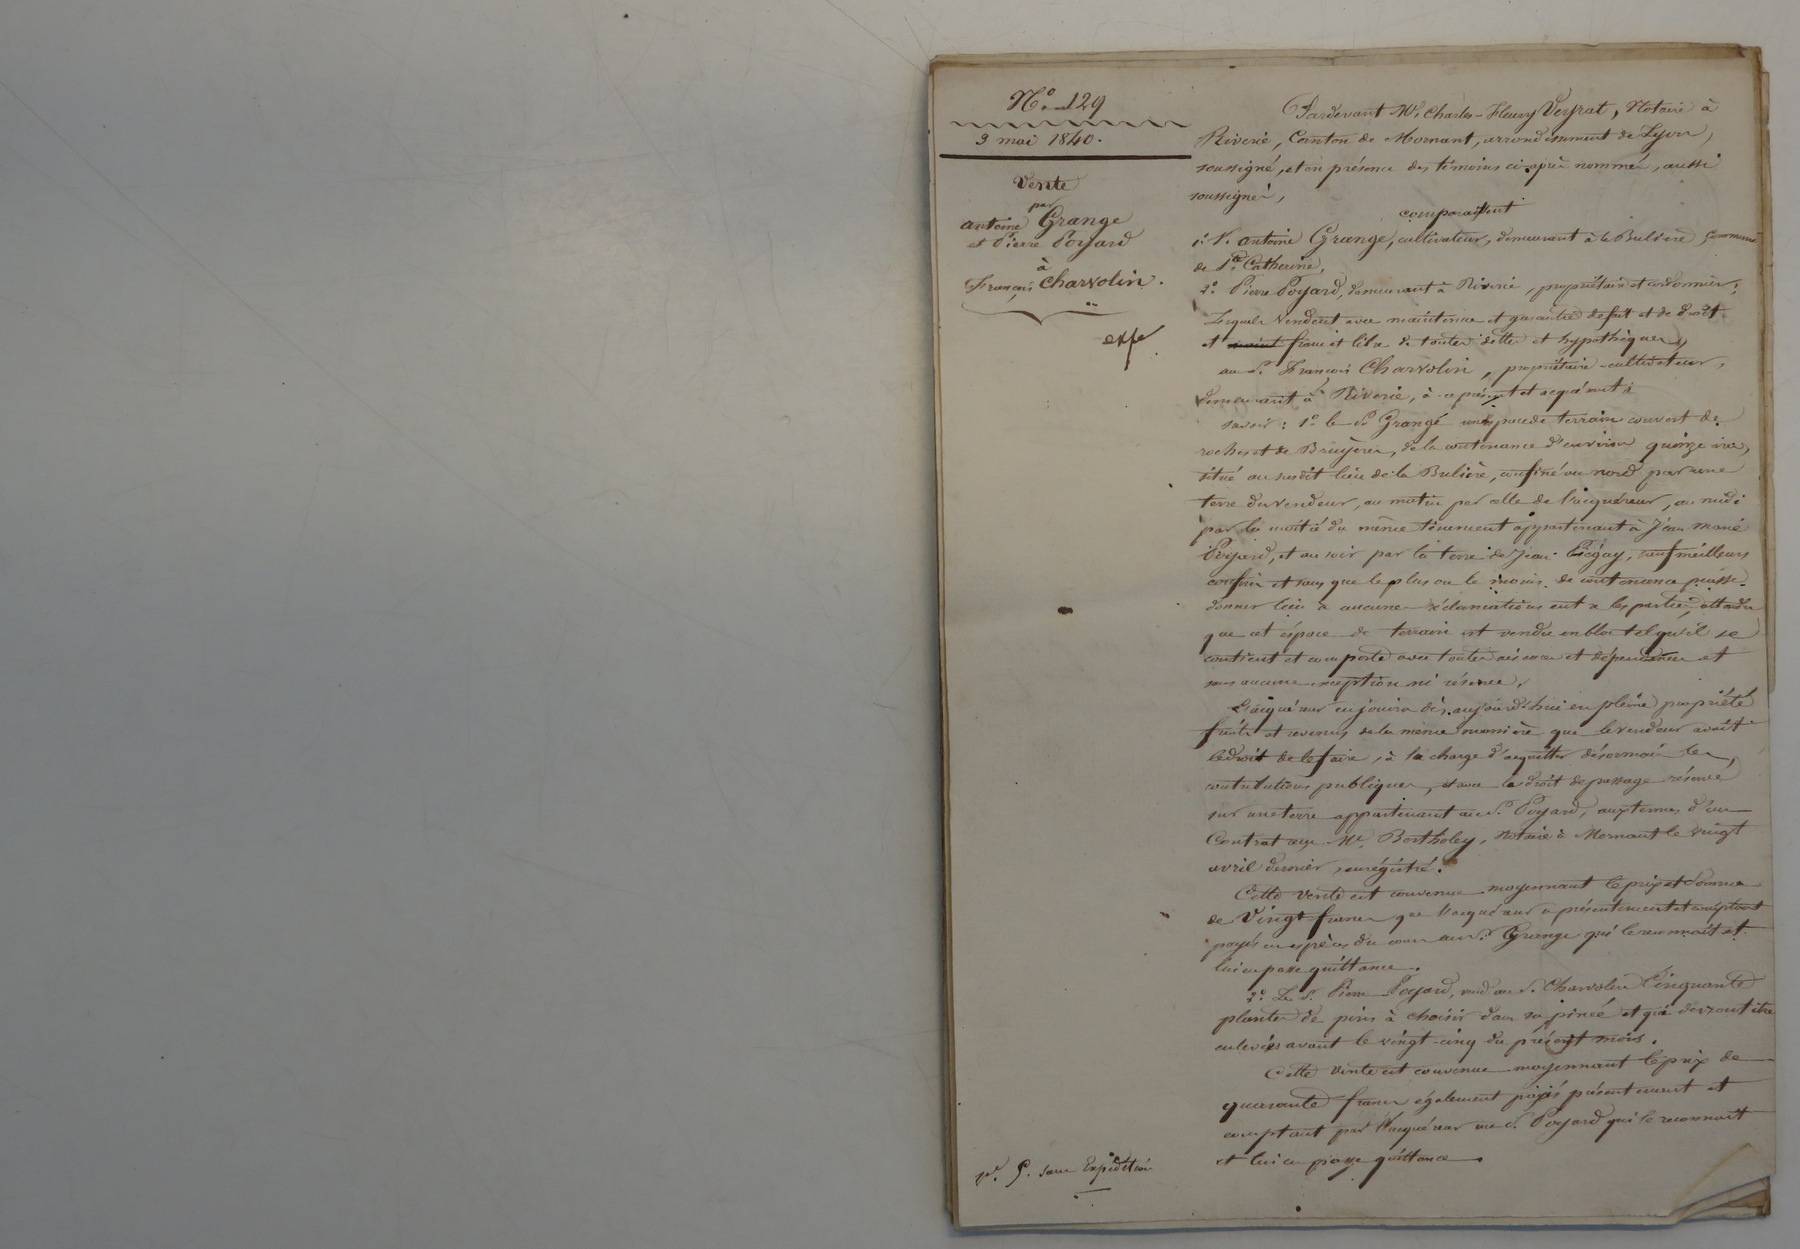 N° 129
3 mai 1840.
Vente
par
antoine Grange
et Pierre Poyard
à
François Charvolin.
exp
Pardevant Me Charles-Fleury Veyrat, Notaire à
Riverie, Canton de Mornant, arrondissement de Lyon,
soussigné, et en présence des témoins ci-après nommés, aussi
soussignés,
comparaissent
1° S. antoine Grange, cultivateur, demeurant à la Bulière Commune
de Ste Catherine,
2° Pierre Poyard, demeurant à Riverie, propriétaire et cordonnier;
Lesquels vendent avec maintenue et garantie de fait et de droit
et franc et libre de toutes dettes et hypothèques,
au S. François Charvolin, propriétaire-cultivateur,
demeurant à Riverie, à ce présent et acquérant;
savoir: 1° le S. Grange un espace de terrain couvert de
rochers et de Bruyères, de la contenance d'environ quinze ares,
situé au susdit lieu de la Bulière, confiné au nord par une
terre du vendeur, au matin par celle de l'acquéreur, au midi
par la moitié du même tènement appartenant à Jean Marie
Poyard, et au soir par la terre de Jean Piégay, sauf meilleurs
confins et sans que le plus ou le moins de contenance puisse
donner lieu à aucunes réclamations entre les parties, attendu
que cet espace de terrain est vendu en bloc tel qu'il se
contient et comporte avec toutes aisances et dépendances et
sans aucune exception ni réserve.
L'acquéreur en jouira dès aujourd'hui en pleine propriété
fruits et revenus de la même manière que le vendeur avait
le droit de le faire, à la charge d'acquitter désormais les
contributions publiques, et avec le droit de passage réservé
sur une terre appartenant au S. Poyard, aux termes d'un
Contrat reçu Me Bertholey, notaire à Mornant le vingt
avril dernier, enrégistré.
Cette vente est convenue moyennant le prix et somme
de Vingt francs que l'acquéreur a présentement et comptant
payés en espèces du cours au S. Grange qui le reconnaît et
lui en passe quittance.
2° Le S. Pierre Poyard, vend au S. Charvolin Cinquante
plantes de pins à choisir dans sa pinée et qui devront être
enlevées avant le vingt-cinq du présent mois.
Cette vente est convenue moyennant le prix de
quarante francs également payés présentement et
comptant par l'acquéreur au S. Poyard qui le reconnaît
et lui en passe quittance.
sans Expédition